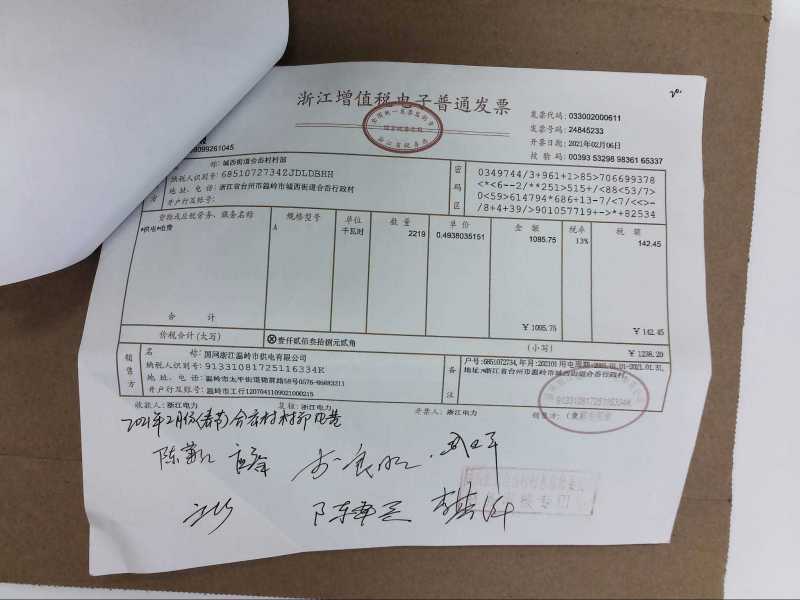 浙江增值税电子普通发票
发票代码: 033002000611
发票号码: 24845233
开票日期: 2021年02月06日
校验码: 00393 53298 98361 65337
099261045
名 称: 城西街道合岙村村部
纳税人识别号: 68510727342JDLDBHH
地址、电话: 浙江省台州市温岭市城西街道合岙行政村
开户行及账号:
密码区
0349744/3+961+1>85>706699378
<*<6--2/**251>515+/<88<53/7>
0<59>614794*686+13-7/<7/<<>-
/8+4+39/>901057719+->*+82534
货物或应税劳务、服务名称 规格型号 单位 数量 单价 金额 税率 税额
*供电*电费 A 千瓦时 2219 0.4938035151 1095.75 13% 142.45
合 计 ¥1095.75 ¥142.45
价税合计(大写) ⊗壹仟贰佰叁拾捌元贰角 (小写) ¥1238.20
销售方
名 称: 国网浙江温岭市供电有限公司
纳税人识别号: 91331081725116334K
地址、电话: 温岭市太平街道锦屏路58号0576-89683311
开户行及账号: 温岭市工行1207041109021000215
备注
户号:6851072734,年月:202101 用电周期:2021.01.01-2021.01.31,
地址:浙江省台州市温岭市城西街道合岙行政村
收款人: 浙江电力 复核: 浙江电力 开票人: 浙江电力 销售方: (章)
91331081725116334K
2021年2月份
合岙村村部电费